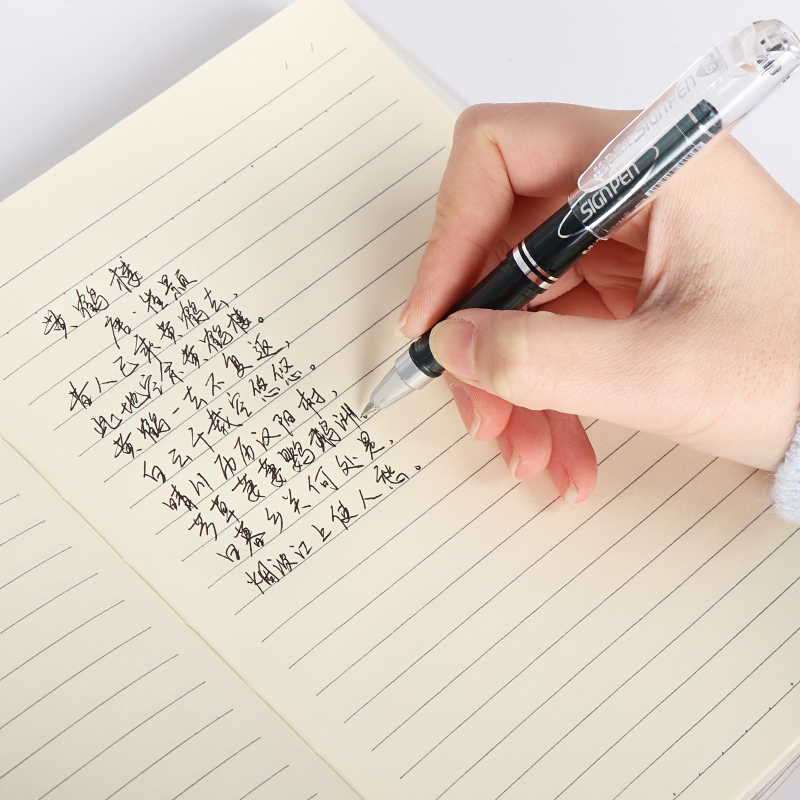 黄鹤楼
唐·崔颢
昔人已乘黄鹤去，
此地空余黄鹤楼。
黄鹤一去不复返，
白云千载空悠悠。
晴川历历汉阳树，
芳草萋萋鹦鹉洲。
日暮乡关何处是，
烟波江上使人愁。
SIGNPEN
SIGNPEN